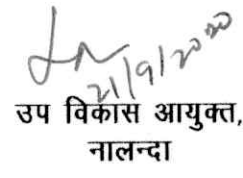 21/9/2020
उप विकास आयुक्त,
नालन्दा